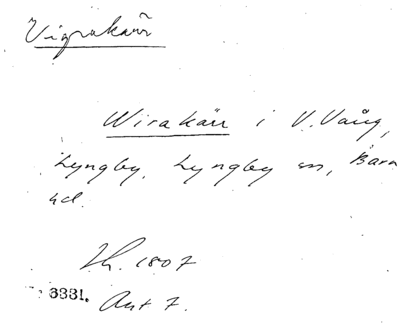 Vigrakärr
Wirakärr i V. Vång,
Lyngby, Lyngby sn, Bara
hd.
Th. 1807
3331. Akt 7.